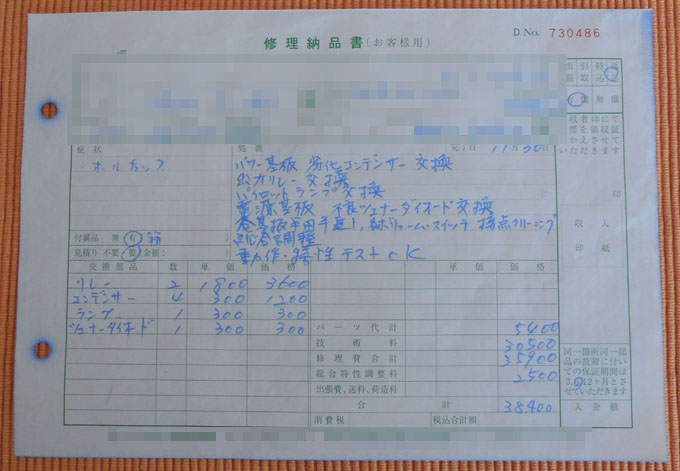 修理納品書(お客様用)
D No. 730486
出 引 持
張 取 込
有償 無償
収者印にて
票を領収証
かえさせて
いただきます
印
収 入
印 紙
症状
処 置
完了日 11/30日
パワー基板 劣化コンデンサー 交換
出力リレー 交換
パイロットランプ 交換
電源基板 不良ツェナーダイオード 交換
各基板半田手直し、 接点クリーニング
総合調整
動作・特性 テスト OK
付属品 無 有
見積り 不要 要 金額:
交換部品 数 単価 価格 単価 価格
リレー 2 1800 3600
コンデンサー 4 300 1200
ランプ 1 300 300
ツェナーダイオード 1 300 300
パーツ代計 5400
技術料 30500
修理費合計 35900
総合特性調整料 2500
出張費、送料、荷造料
合計 38400
消費税 税込合計額
同一箇所同一部
品の故障に付い
ての保証期間は
3.6.12ヶ月とさ
せていただきます
入金額